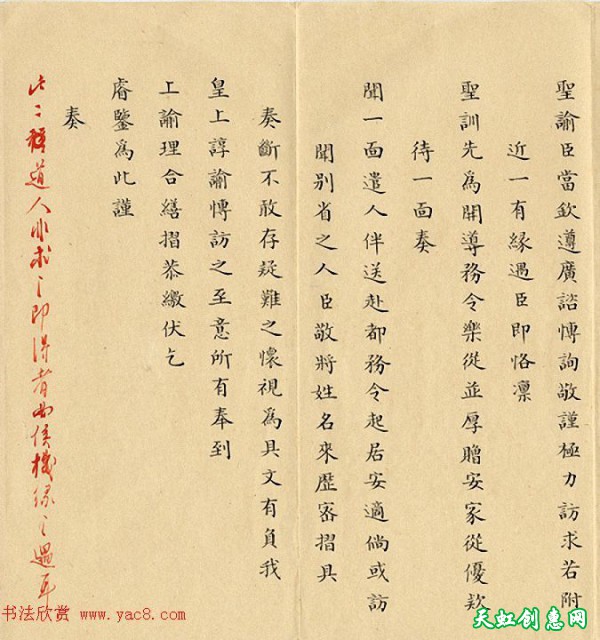 聖諭臣當欽遵廣諮愽詢敬謹極力訪求若附
近一有緣遇臣即恪凛
聖訓先為開導務令樂從並厚贈安家從優欵
待一面奏
聞一面遣人伴送赴都務令起居安適倘或訪
聞別省之人臣敬將姓名來歷密摺具
奏斷不敢存疑難之懷視為具文有負我
皇上諄諭愽訪之至意所有奉到
上諭理合繕摺恭繳伏乞
睿鑒為此謹
奏
此二種道人非求之即得者俟機緣之遇耳
书法欣赏 www.yac8.com
天虹创惠网